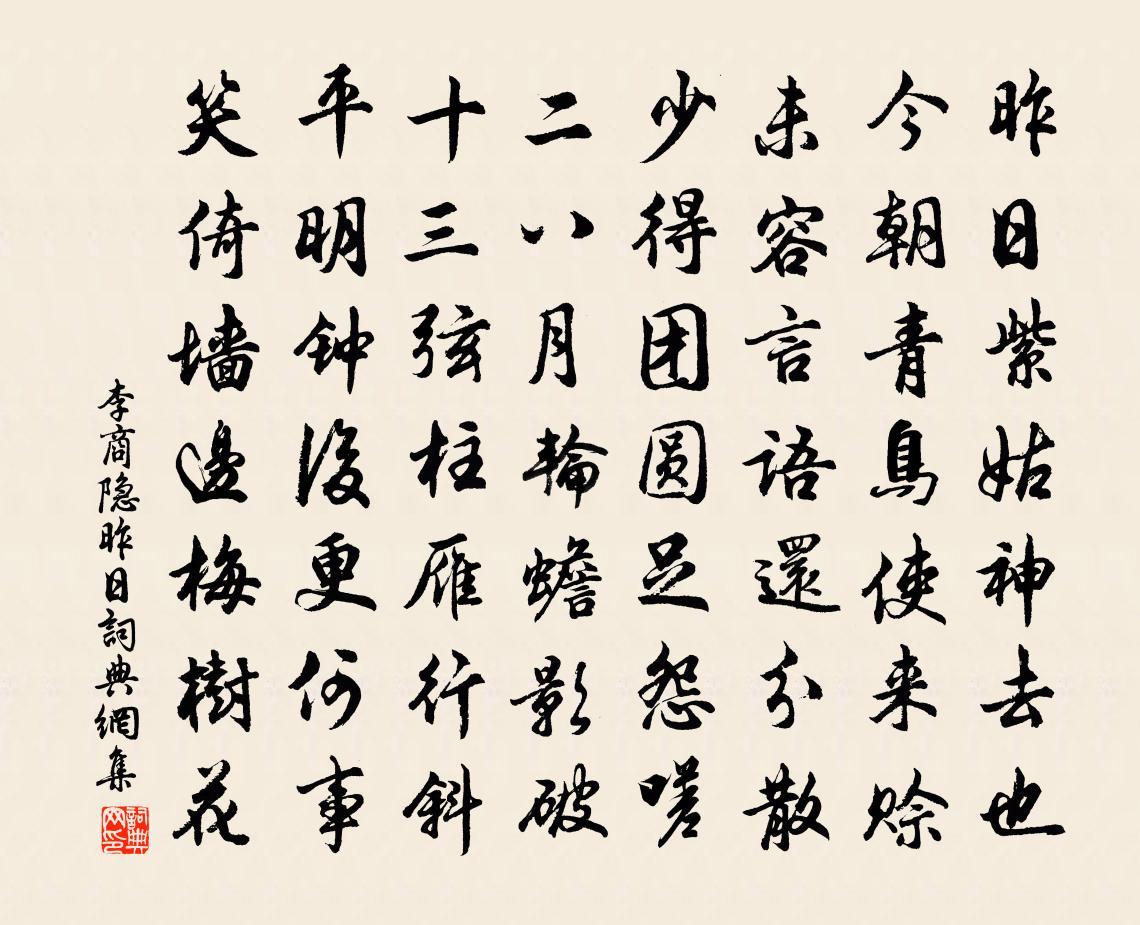 昨日紫姑神去也
今朝青鳥使来赊
未容言語還分散
少得团圆足怨嗟
二八月輪蟾影破
十三弦柱雁行斜
平明钟後更何事
笑倚墙邊梅樹花
李商隐昨日詞典網集
詞典网印